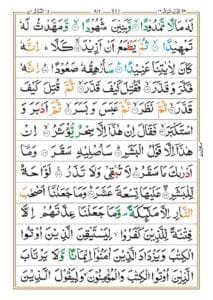 لَهٗ مَالًا مَّمْدُوْدًا ۙ وَّبَنِيْنَ شُهُوْدًا ۙ وَّمَهَّدْتُّ لَهٗ
تَمْهِيْدًا ۙ ثُمَّ يَطْمَعُ اَنْ اَزِيْدَ ۙ كَلَّا ؕ اِنَّهٗ
كَانَ لِاٰيٰتِنَا عَنِيْدًا ؕ سَاُرْهِقُهٗ صَعُوْدًا ؕ اِنَّهٗ
فَكَّرَ وَقَدَّرَ ۙ فَقُتِلَ كَيْفَ قَدَّرَ ۙ ثُمَّ قُتِلَ كَيْفَ
قَدَّرَ ۙ ثُمَّ نَظَرَ ۙ ثُمَّ عَبَسَ وَبَسَرَ ۙ ثُمَّ اَدْبَرَ وَ
اسْتَكْبَرَ ۙ فَقَالَ اِنْ هٰذَاۤ اِلَّا سِحْرٌ يُّؤْثَرُ ۙ اِنْ
هٰذَاۤ اِلَّا قَوْلُ الْبَشَرِ ؕ سَاُصْلِيْهِ سَقَرَ ۙ وَمَاۤ
اَدْرٰىكَ مَا سَقَرُ ؕ لَا تُبْقِيْ وَلَا تَذَرُ ۚ لَوَّاحَةٌ
لِّلْبَشَرِ ۚ عَلَيْهَا تِسْعَةَ عَشَرَ ؕ وَمَا جَعَلْنَاۤ اَصْحٰبَ
النَّارِ اِلَّا مَلٰٓئِكَةً ۪ وَّمَا جَعَلْنَا عِدَّتَهُمْ اِلَّا
فِتْنَةً لِّلَّذِيْنَ كَفَرُوْا ۙ لِيَسْتَيْقِنَ الَّذِيْنَ اُوْتُوا
الْكِتٰبَ وَيَزْدَادَ الَّذِيْنَ اٰمَنُوْۤا اِيْمَانًا وَّلَا يَرْتَابَ الَّذِيْنَ اُوْتُوا
الْكِتٰبَ وَالْمُؤْمِنُوْنَ ۙ وَلِيَقُوْلَ الَّذِيْنَ